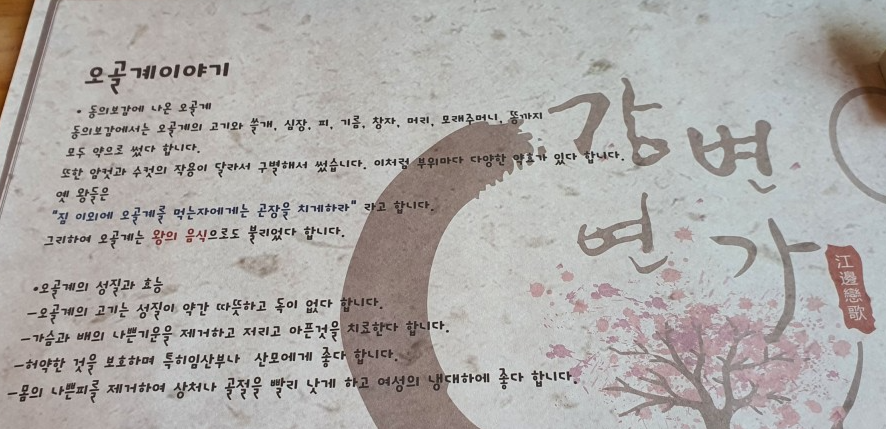 오골계이야기
• 동의보감에 나온 오골계
동의보감에서는 오골계의 고기와 쓸개, 심장, 피, 기름, 창자, 머리, 모래주머니, 똥까지
모두 약으로 썼다 합니다.
또한 암컷과 수컷의 작용이 달라서 구별해서 썼습니다. 이처럼 부위마다 다양한 약효가 있다 합니다.
옛 왕들은
"짐 이외에 오골계를 먹는자에게는 곤장을 치게하라" 라고 합니다.
그리하여 오골계는 왕의 음식으로도 불리었다 합니다.
•오골계의 성질과 효능
-오골계의 고기는 성질이 약간 따뜻하고 독이 없다 합니다.
-가슴과 배의 나쁜기운을 제거하고 저리고 아픈것을 치료한다 합니다.
-허약한 것을 보호하며 특히임산부나 산모에게 좋다 합니다.
-몸의 나쁜피를 제거하여 상처나 골절을 빨리 낫게 하고 여성의 냉대하에 좋다 합니다.
강변
연가
江邊戀歌